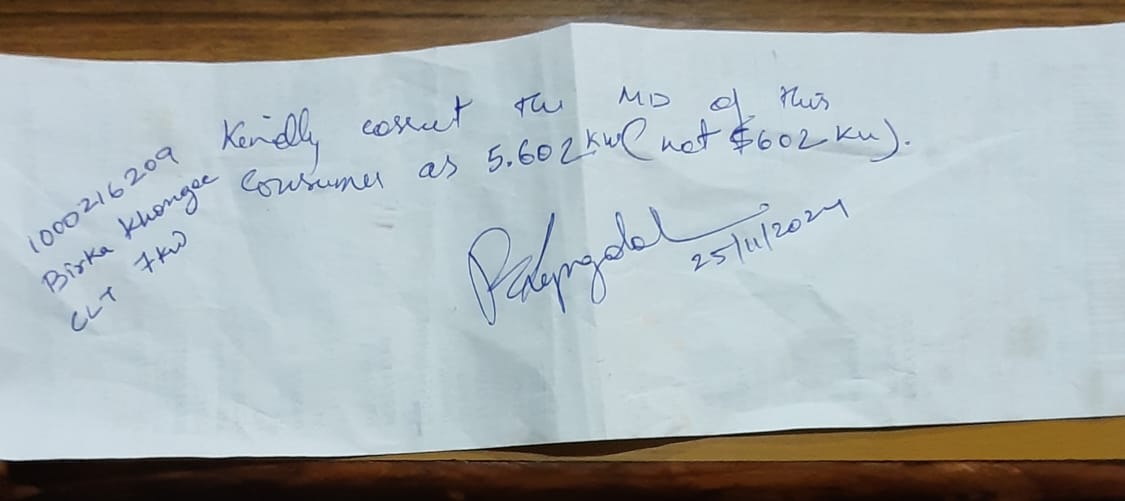 1000216209
Birka Khongee
CLT 7kW
Kindly correct the MD of this
Consumer as 5.602 kW (not 5602 kW).
25/11/2024